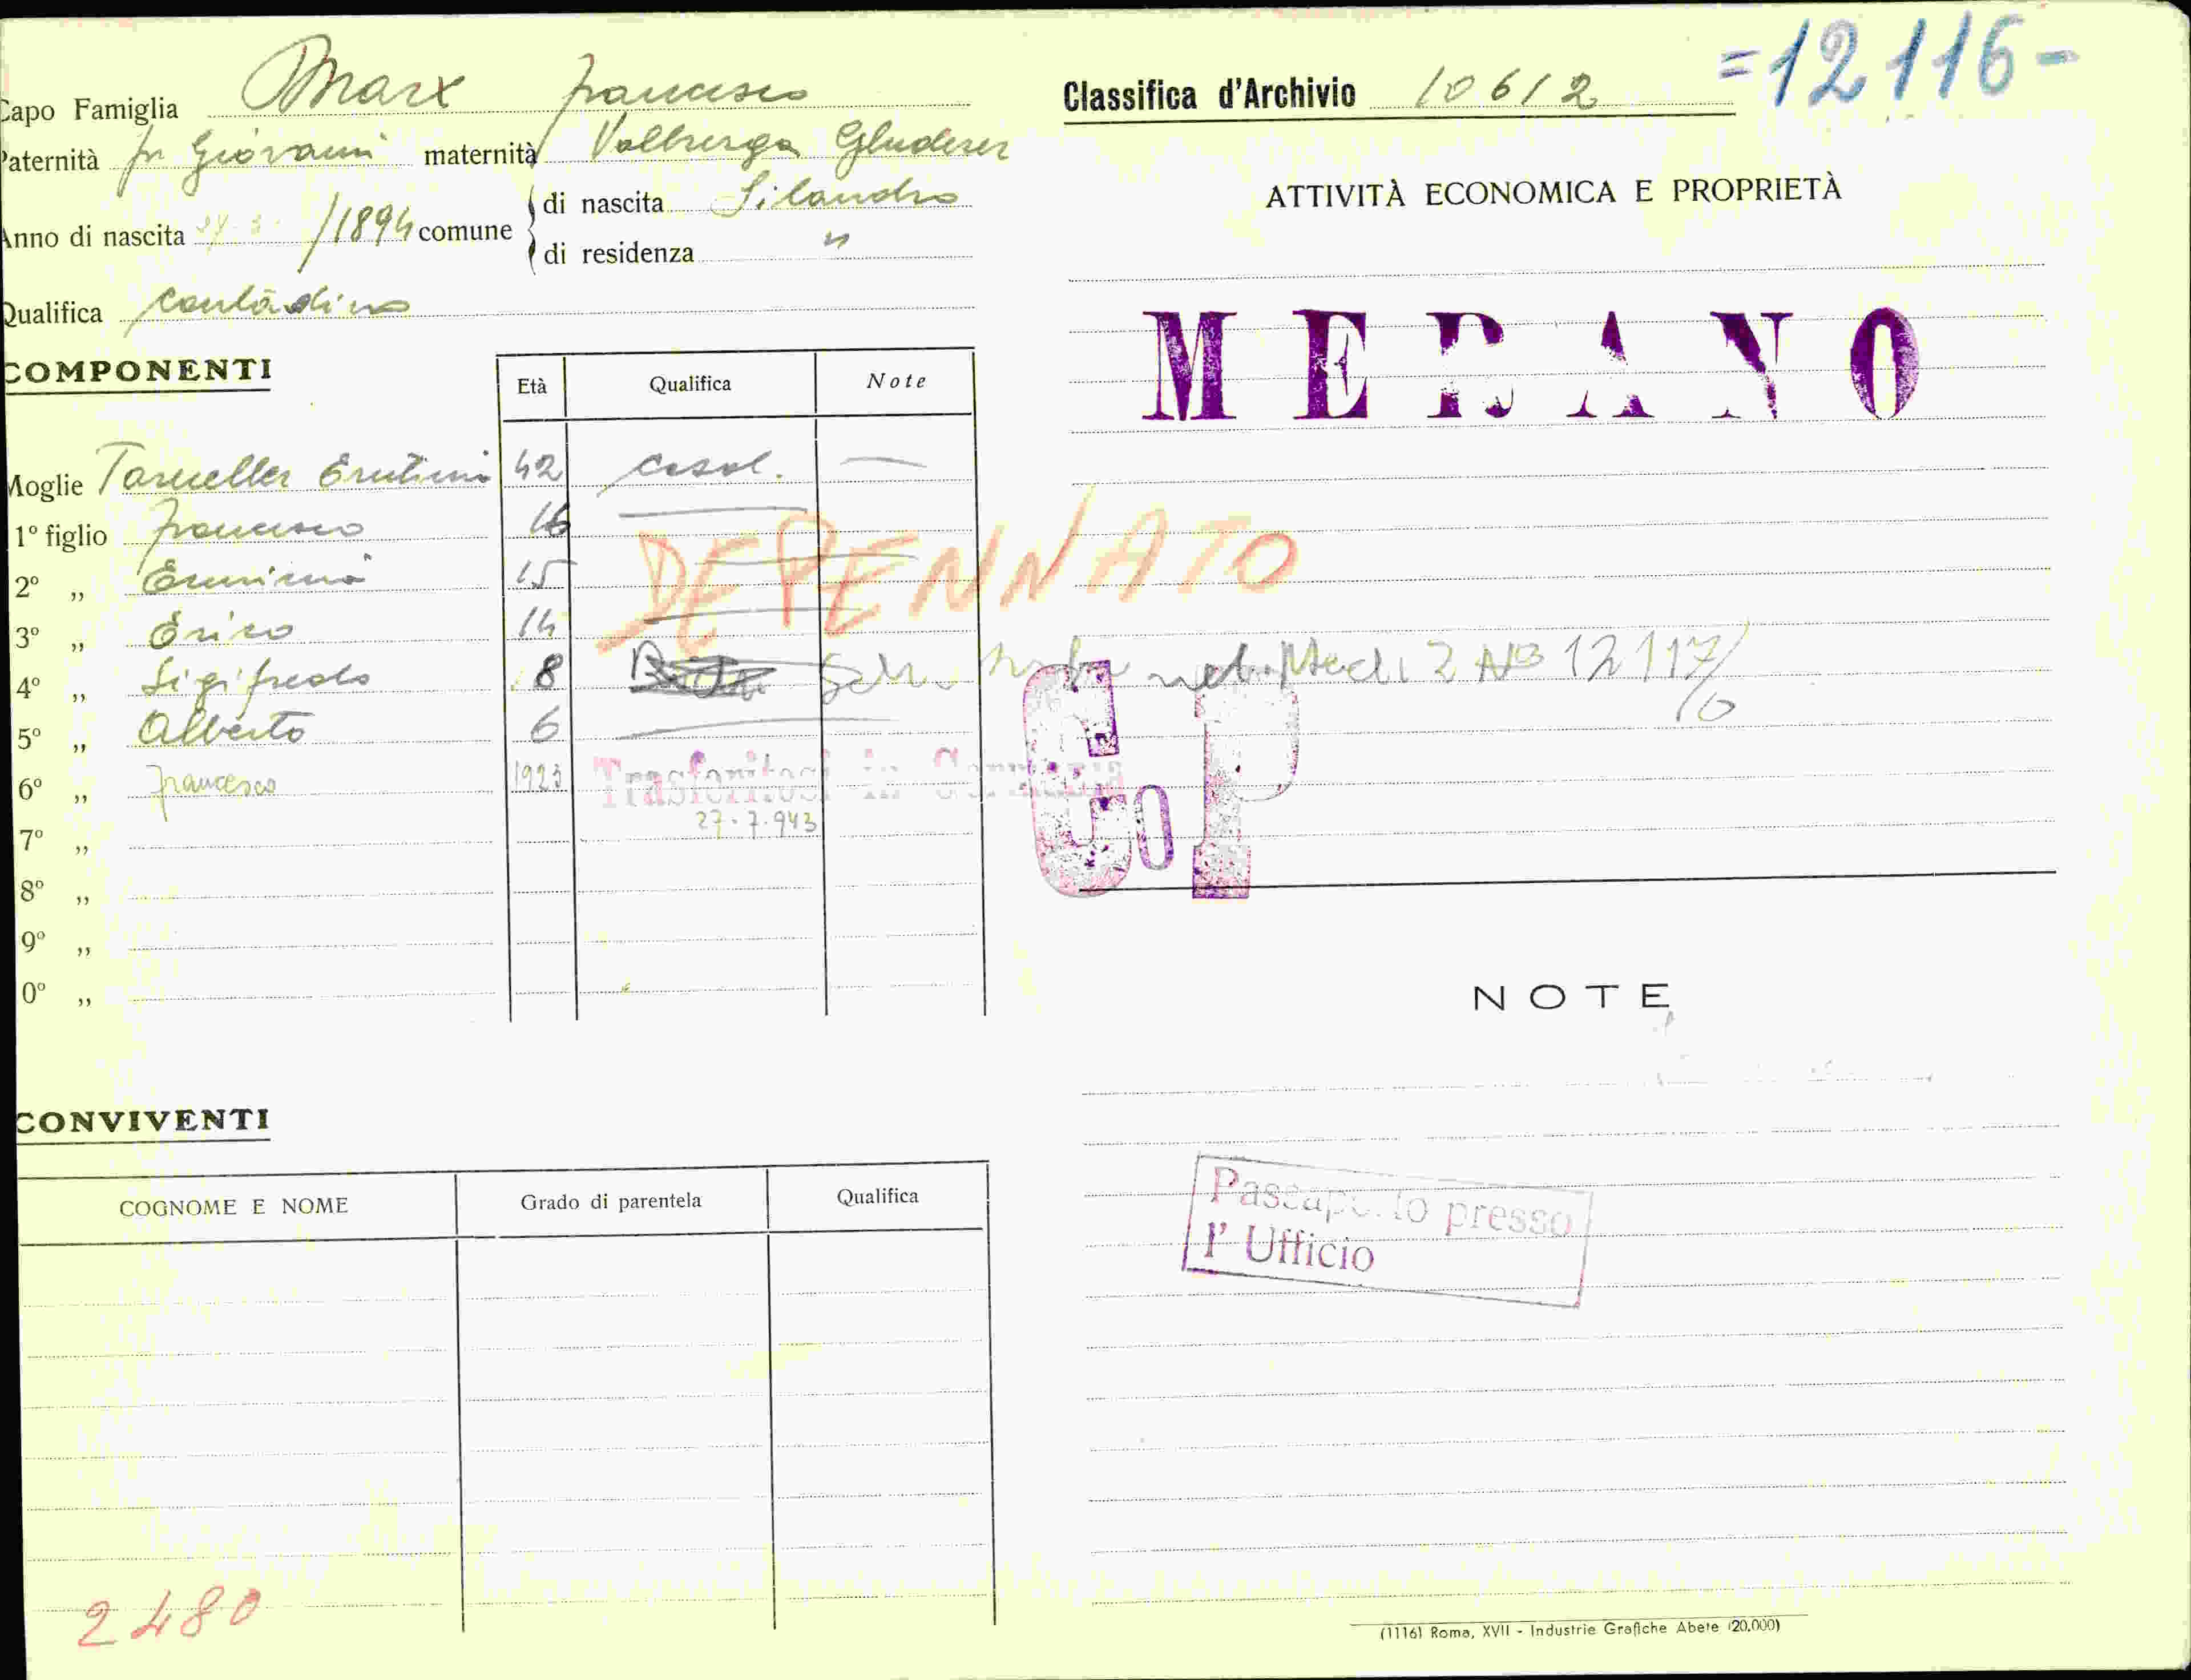 Capo Famiglia Marx Francesco
Paternità fu Giovanni maternità Valburga Gluderer
Anno di nascita /1894 comune di nascita Silandro
di residenza "
Qualifica contadino
COMPONENTI
Età Qualifica Note
Moglie Tarneller 42 casal. —
1° figlio Francesco 16
2° „ Erminia 15
3° „ Erico 14
4° „ Sigifredo 8
5° „ Alberto 6
6° „ Francesco 1923 Trasferitosi in Germania
27.7.943
7° „
8° „
9° „
0° „
DEPENNATO
CONVIVENTI
COGNOME E NOME Grado di parentela Qualifica
2480
Classifica d'Archivio 10612 =12116-
ATTIVITÀ ECONOMICA E PROPRIETÀ
MERANO
12117/
G P
NOTE
Passaporto presso
l' Ufficio
(1116) Roma, XVII - Industrie Grafiche Abete (20.000)